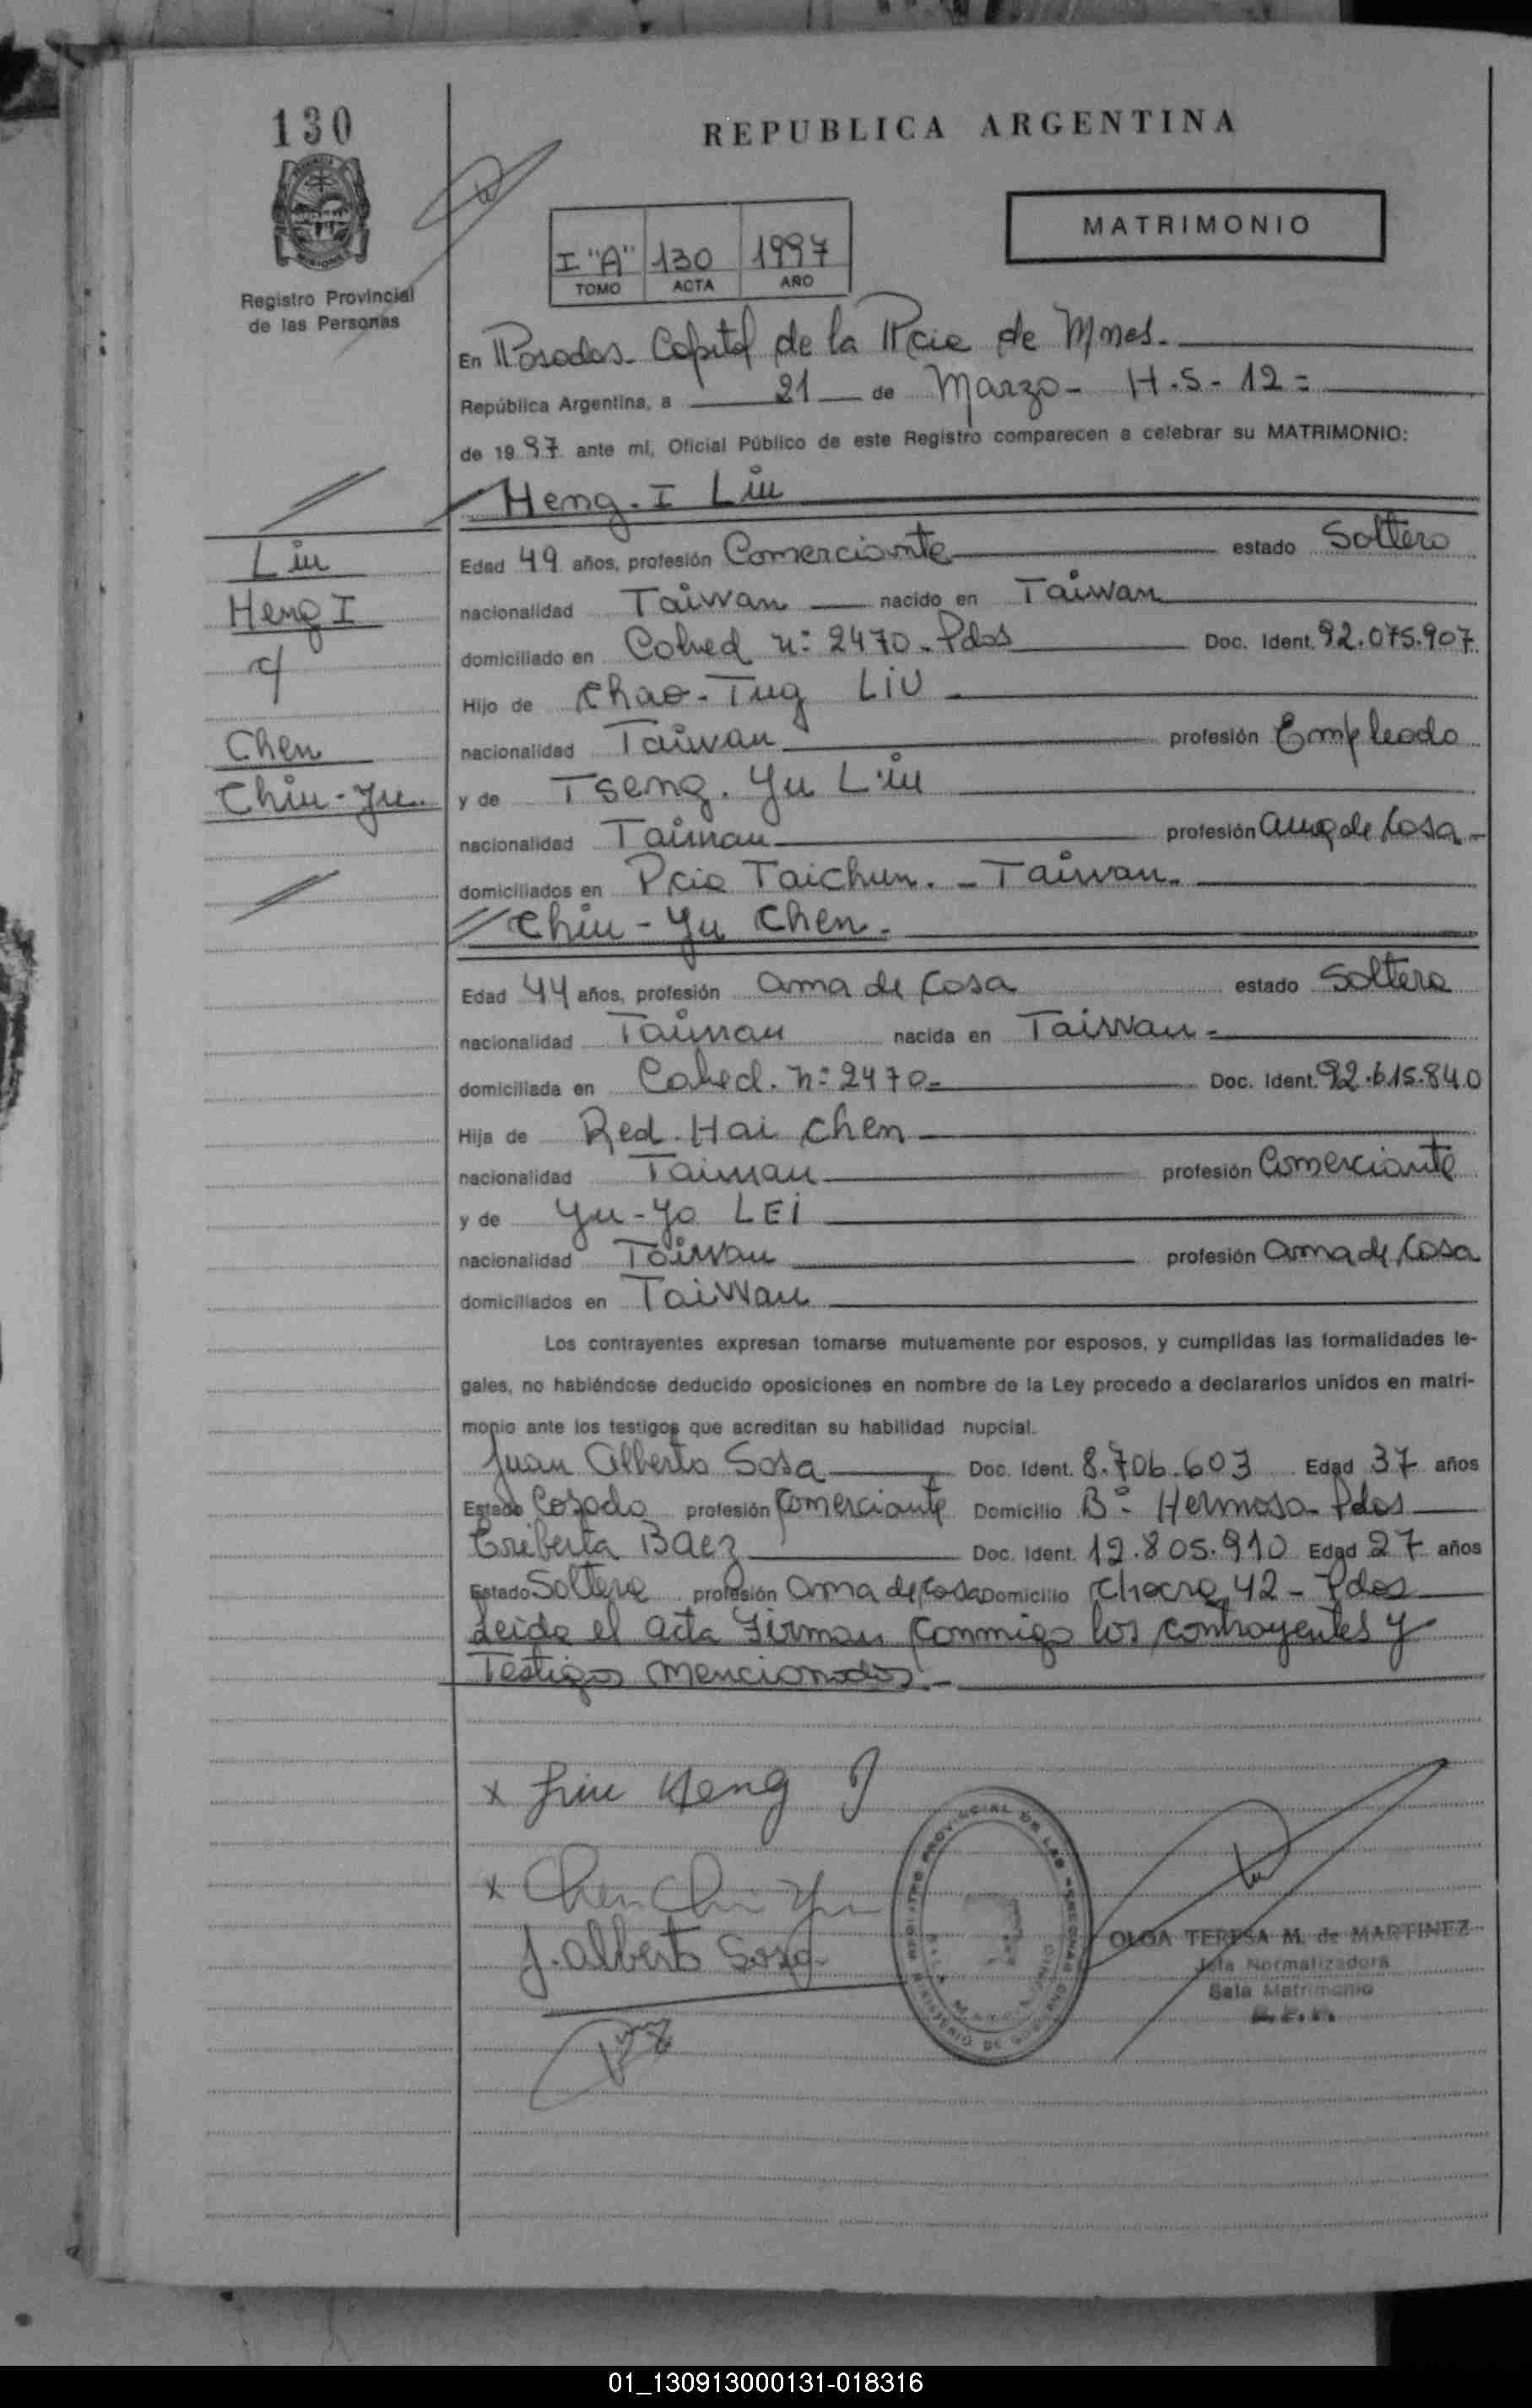 130
REPUBLICA ARGENTINA
MATRIMONIO
I "A" 130 1997
TOMO ACTA AÑO
Registro Provincial
de las Personas
En Posadas Capital de la Pcia de Mnes.
República Argentina, a 21 de Marzo - H.S - 12 =
de 1997 ante mí, Oficial Público de este Registro comparecen a celebrar su MATRIMONIO:
Heng. I Liu
Liu
Heng I
c/
Chen
Chiu-Yu.
Edad 49 años, profesión Comerciante estado Soltero
nacionalidad Taiwan nacido en Taiwan
domiciliado en n: 2470 - Pdas Doc. Ident. 92.075.907
Hijo de Chao-Tug LIU
nacionalidad Taiwan profesión Empleado
y de Tseng. Yu Liu
nacionalidad Taiwan profesión ama de Casa -
domiciliados en Pcia Taichun. - Taiwan.
Chiu - Yu Chen.
Edad 44 años, profesión ama de Casa estado Soltera
nacionalidad Taiwan nacida en Taiwan -
domiciliada en n: 2470 - Doc. Ident. 92.615.840
Hija de Red. Hai Chen
nacionalidad Taiwan profesión Comerciante
y de Yu-Yo LEI
nacionalidad Taiwan profesión ama de Casa
domiciliados en Taiwan
Los contrayentes expresan tomarse mutuamente por esposos, y cumplidas las formalidades le-
gales, no habiéndose deducido oposiciones en nombre de la Ley procedo a declararlos unidos en matri-
monio ante los testigos que acreditan su habilidad nupcial.
Juan Alberto Sosa Doc. Ident. 8.706.603 Edad 37 años
Estado Casado profesión Comerciante Domicilio B° Hermoso - Pdas
Eriberta Baez Doc. Ident. 12.805.910 Edad 27 años
Estado Soltera profesión ama de Casa Domicilio Chacra 42 - Pdas
Leida el acta Firman Conmigo los contrayentes y
Testigos mencionados -
x Liu Heng I
x Chen Chiu Yu
J. Alberto Sosa
OLGA TERESA M. de MARTINEZ
Jefa Normalizadora
Sala Matrimonio
R.P.P.
01_130913000131-018316